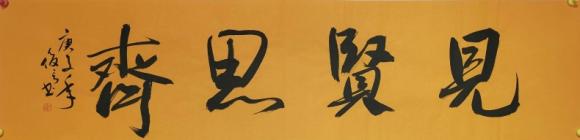 見賢思齊
庚子年